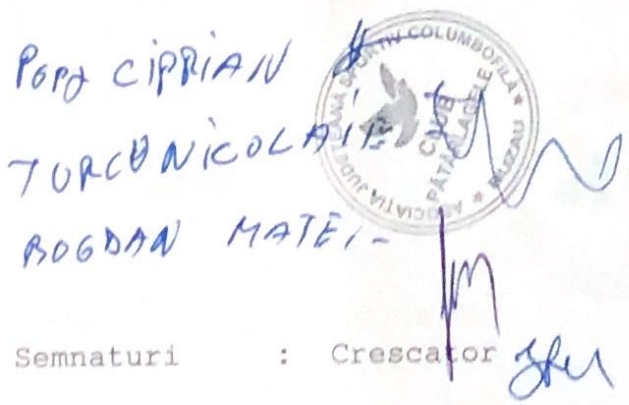 POPA CIPRIAN
TURCU NICOLAIE
BOGDAN MATEI
ASOCIATIA JUDETEANA SPORTIV COLUMBOFILA * BUZAU *
CLUB
PATARLAGELE
Semnaturi : Crescator